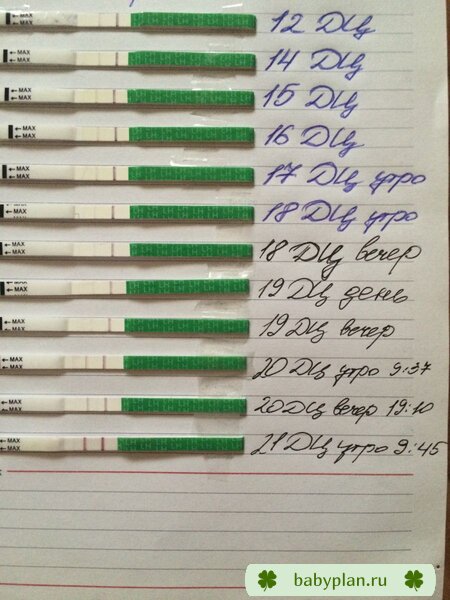 ← MAX
← MAX
12 ДЦ
← MAX
← MAX
14 ДЦ
← MAX
← MAX
15 ДЦ
← MAX
← MAX
16 ДЦ
← MAX
← MAX
17 ДЦ утро
← MAX
← MAX
18 ДЦ утро
← MAX
← MAX
18 ДЦ вечер
← MAX
← MAX
19 ДЦ день
← MAX
← MAX
19 ДЦ вечер
← MAX
← MAX
20 ДЦ утро 9:37
← MAX
← MAX
20 ДЦ вечер 19:10
← MAX
← MAX
21 ДЦ утро 9:45
babyplan.ru